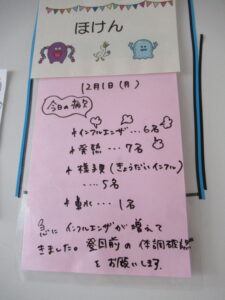 ほけん
12月1日(月)
今日の病欠
インフルエンザ…6名
発熱…7名
様子見(きょうだいインフル)
…5名
1名
急に インフルエンザが 増えて
きました。登園前の 体調確認
をお願いします。